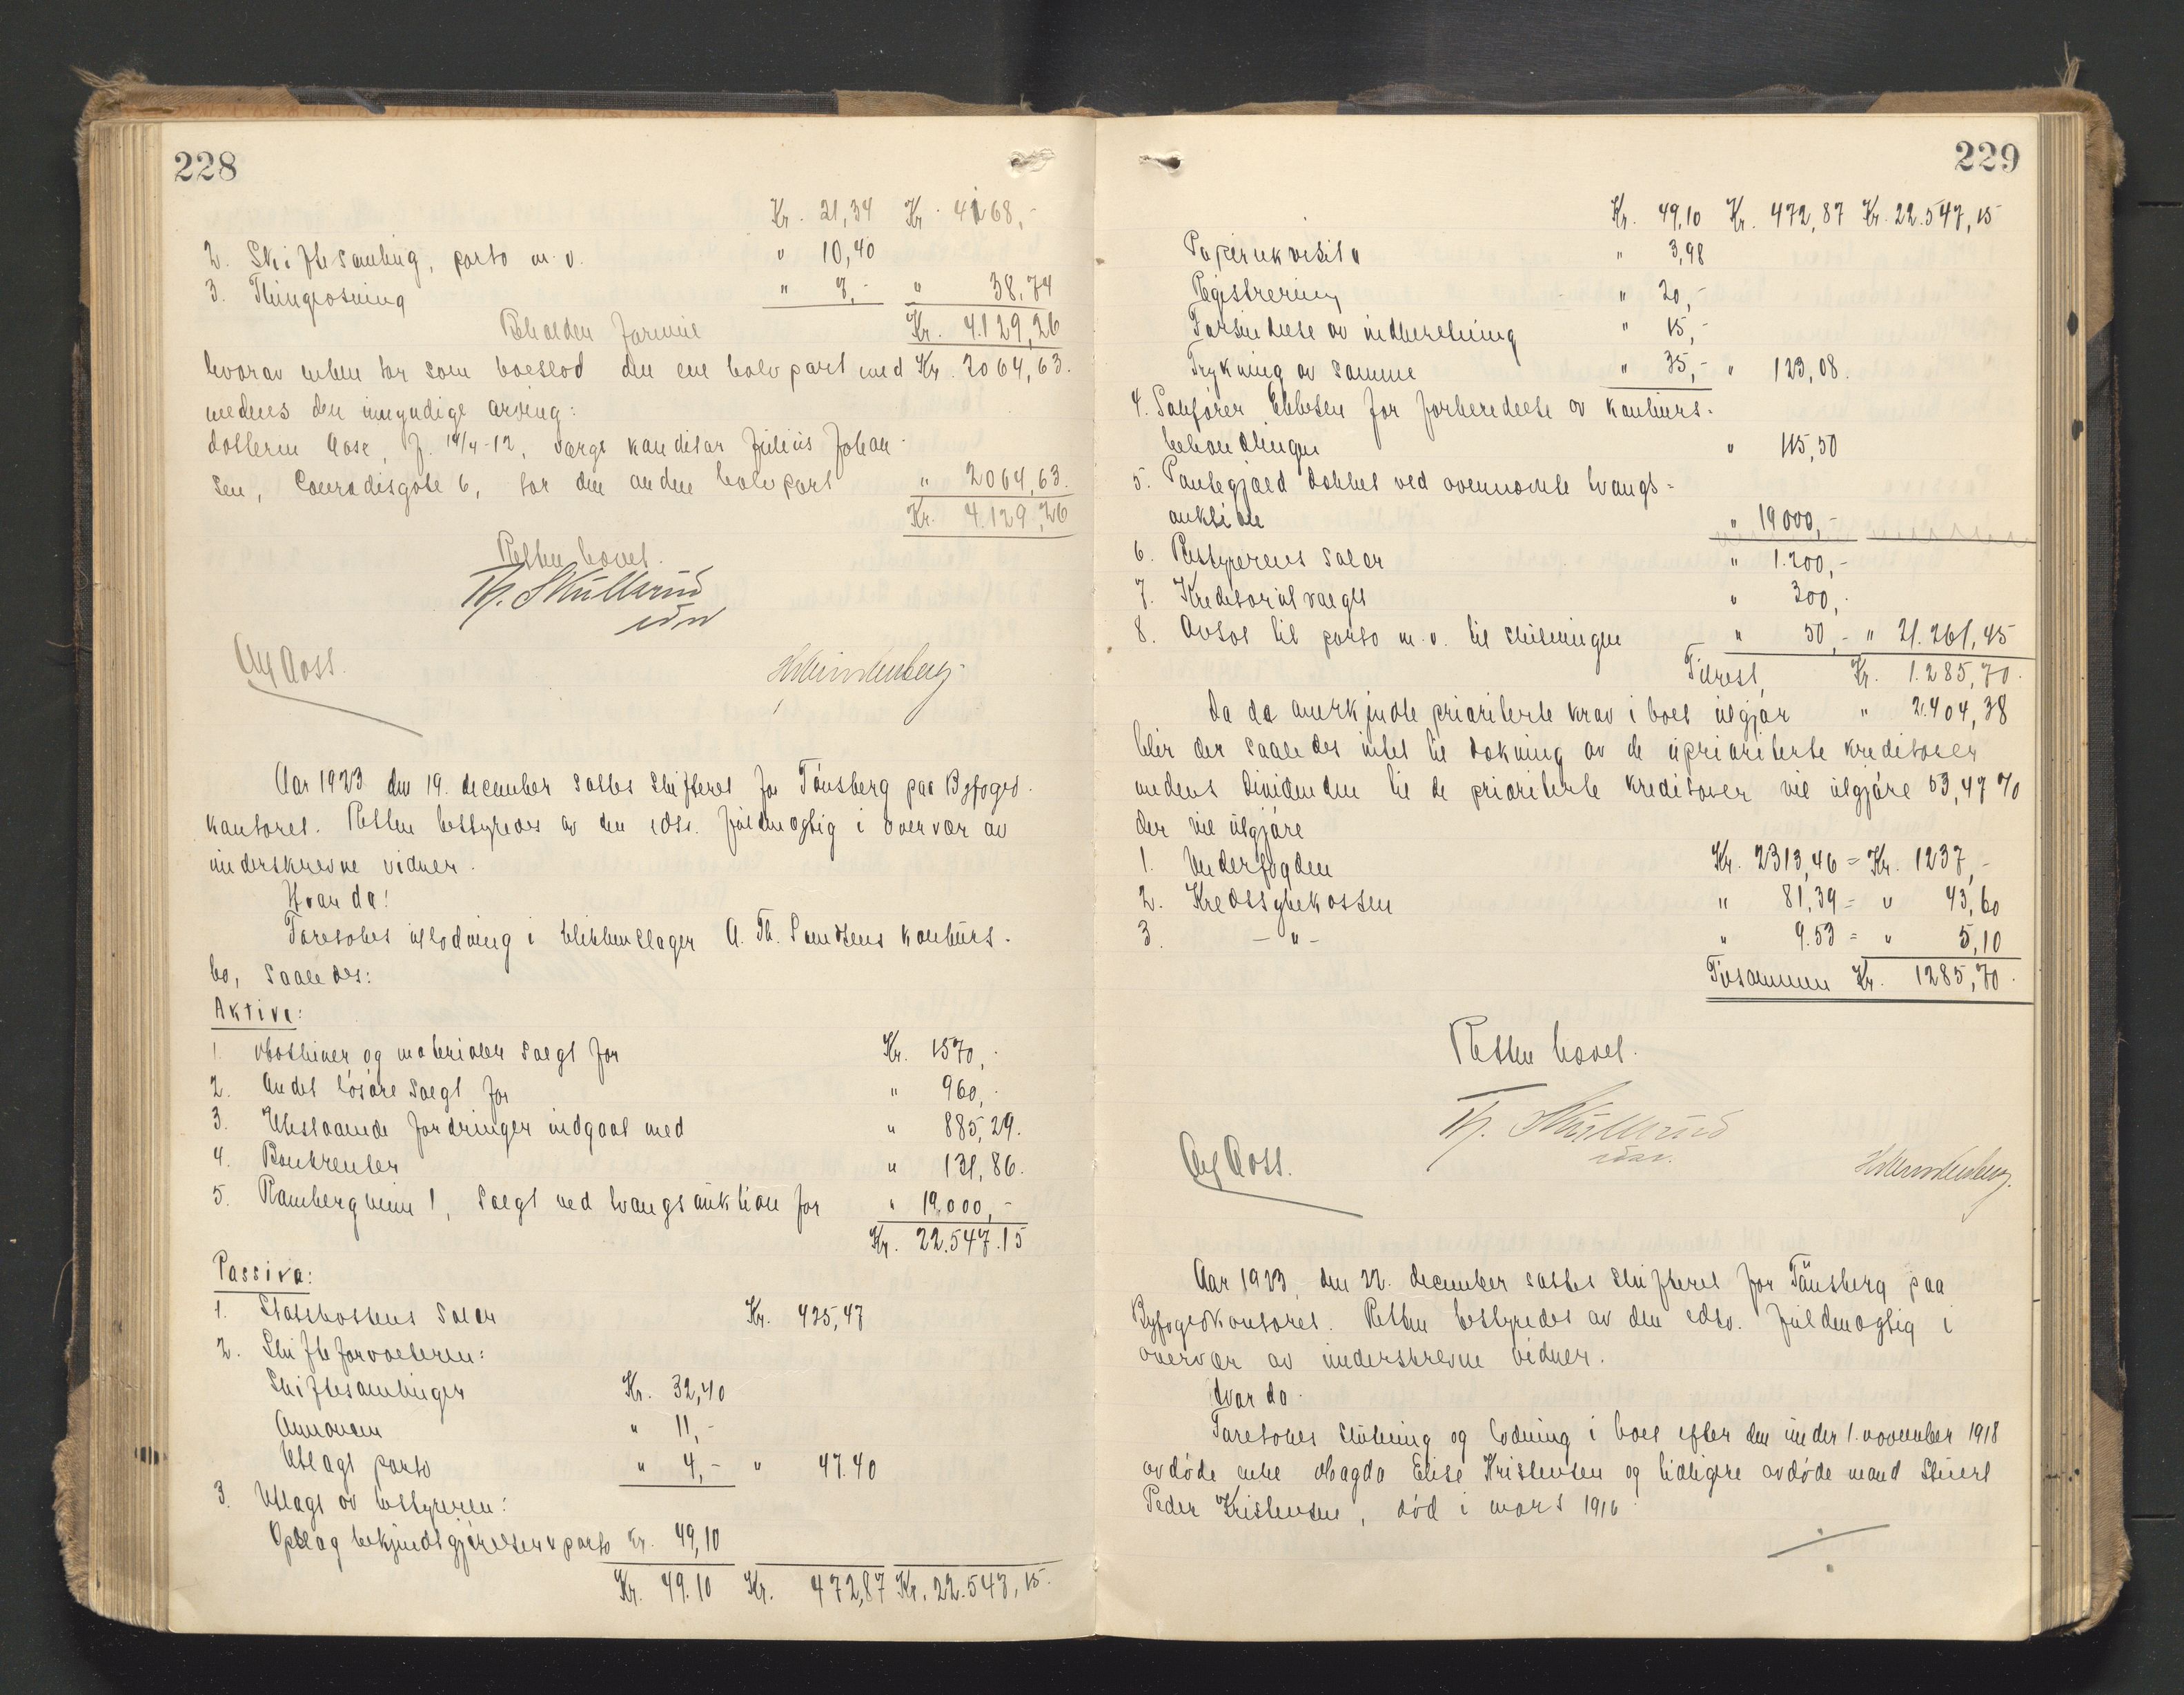 228
Kr. 21,34 Kr. 4168,-
2. Skiftesamling, porto m.v. " 10,40
3. Thinglæsning " 7,- " 38,74
Beholden formue Kr. 4.129,26
hvorav enken tar som boeslod den ene halvpart med Kr. 2064,63.
medens den umyndige arving:
datteren Aase, f. 14/4-12, værge kanditar Julius Johan-
sen, Conradisgate 6, tar den anden halvpart " 2064,63.
Kr. 4.129,26
Retten hævet.
Th. Skullerud
edsv
Alf Aass.
Aar 1923 den 19. december sattes skifteret for Tönsberg paa Byfoged-
kontoret. Retten bestyredes av den edsv. fuldmægtig i overvær av
underskrevne vidner.
Hvorda:
Foretokes utlodning i blikkenslager A. Th. Lundtens konkurs-
bo, saaledes:
Aktiva:
1. Maskiner og materialer solgt for Kr. 1570,-
2. Andet lösöre solgt for " 960,-
3. Utestaaende fordringer indgaat med " 885,29.
4. Bankrenter " 131,86.
5. Ramberg veien 1, solgt ved tvangsauktion for " 19.000,-
Kr. 22.547.15
Passiva:
1. Statskassens salær Kr. 425,47
2. Skifteforvalteren:
Skiftesamlinger Kr. 32,40
Annoncen " 11,-
Utlagt porto " 4,- " 47.40
3. Utlagt av bestyreren:
Opslag bekjendtgjörelser & porto Kr. 49,10
Kr. 49.10 Kr. 472,87 Kr. 22.543,15.
229
Kr. 49,10 Kr. 472,87 Kr. 22.547,15
Papirrekvisita " 3,98
Registrering " 20,-
Forsendelse av indberetning " 15,-
Trykning av samme " 35,- " 123,08.
4. Sakförer Ebbesen for forberedelse av konkurs-
behandlingen " 115,50
5. Pantegjæld dækket ved ovennævnte tvangs-
auktion " 19000,-
6. Bestyrerens salær " 1.200,-
7. Kreditorutvalget " 300,-
8. Avsat til porto m.v. til slutningen " 50,- " 21.261,45
Tilrest Kr. 1.285,70.
Da de anerkjendte prioriterte krav i boet utgjör " 2.404,38
blir der saaledes intet til dækning av de uprioriterte kreditorer
medens dividenden til de prioriterte kreditorer vil utgjöre 53,47 %
der vil utgjöre
1. Underfogden Kr. 2313,46 = Kr. 1237,-
2. Kredssykekassen " 81,39 = " 43,60
3. - " - " 9.53 = " 5,10
Tilsammen Kr. 1285,70.
Retten hævet.
Th. Skullerud
edsv.
Alf Aass.
Aar 1923, den 22. december sattes skifteret for Tönsberg paa
Byfogedkontoret. Retten bestyredes av den edsv. fuldmægtig i
overvær av underskrevne vidner.
Hvorda.
Foretokes slutning og lodning i boet efter den under 1. november 1918
avdöde enke Magda Elise Kristensen og tidligere avdöde mand Stuert
Peder Kristensen, död i mars 1916.